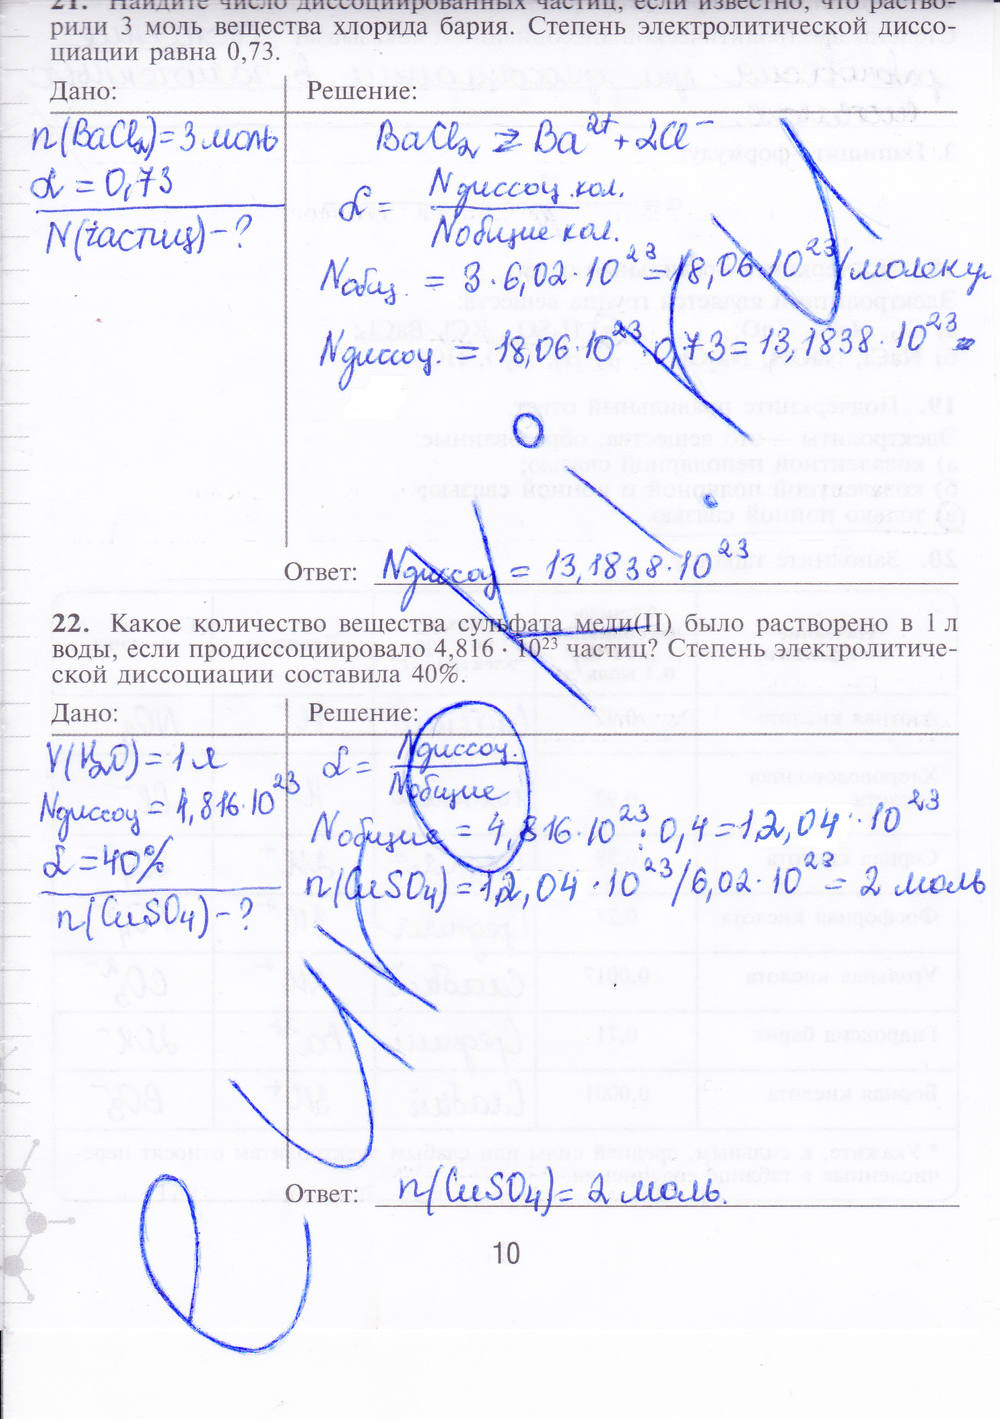 21. Найдите число диссоциированных частиц, если известно, что раство-
рили 3 моль вещества хлорида бария. Степень электролитической диссо-
циации равна 0,73.
Дано:
Решение:
n(BaCl₂)=3 моль
α = 0,73
N(частиц) - ?
BaCl₂ ⇄ Ba²⁺ + 2Cl⁻
α = Nдиссоц. кол. / Nобщие кол.
Nобщ. = 3 · 6,02 · 10²³ = 18,06 · 10²³ (молекул
Nдиссоц. = 18,06 · 10²³ · 0,73 = 13,1838 · 10²³
Ответ: Nдиссоц = 13,1838 · 10²³
22. Какое количество вещества сульфата меди(II) было растворено в 1 л
воды, если продиссоциировало 4,816 · 10²³ частиц? Степень электролитиче-
ской диссоциации составила 40%.
Дано:
Решение:
V(H₂O) = 1 л
Nдиссоц = 4,816 · 10²³
α = 40%
n(CuSO₄) - ?
α = Nдиссоц. / Nобщие
Nобщие = 4,816 · 10²³ : 0,4 = 12,04 · 10²³
n(CuSO₄) = 12,04 · 10²³ / 6,02 · 10²³ = 2 моль
Ответ: n(CuSO₄) = 2 моль.
10